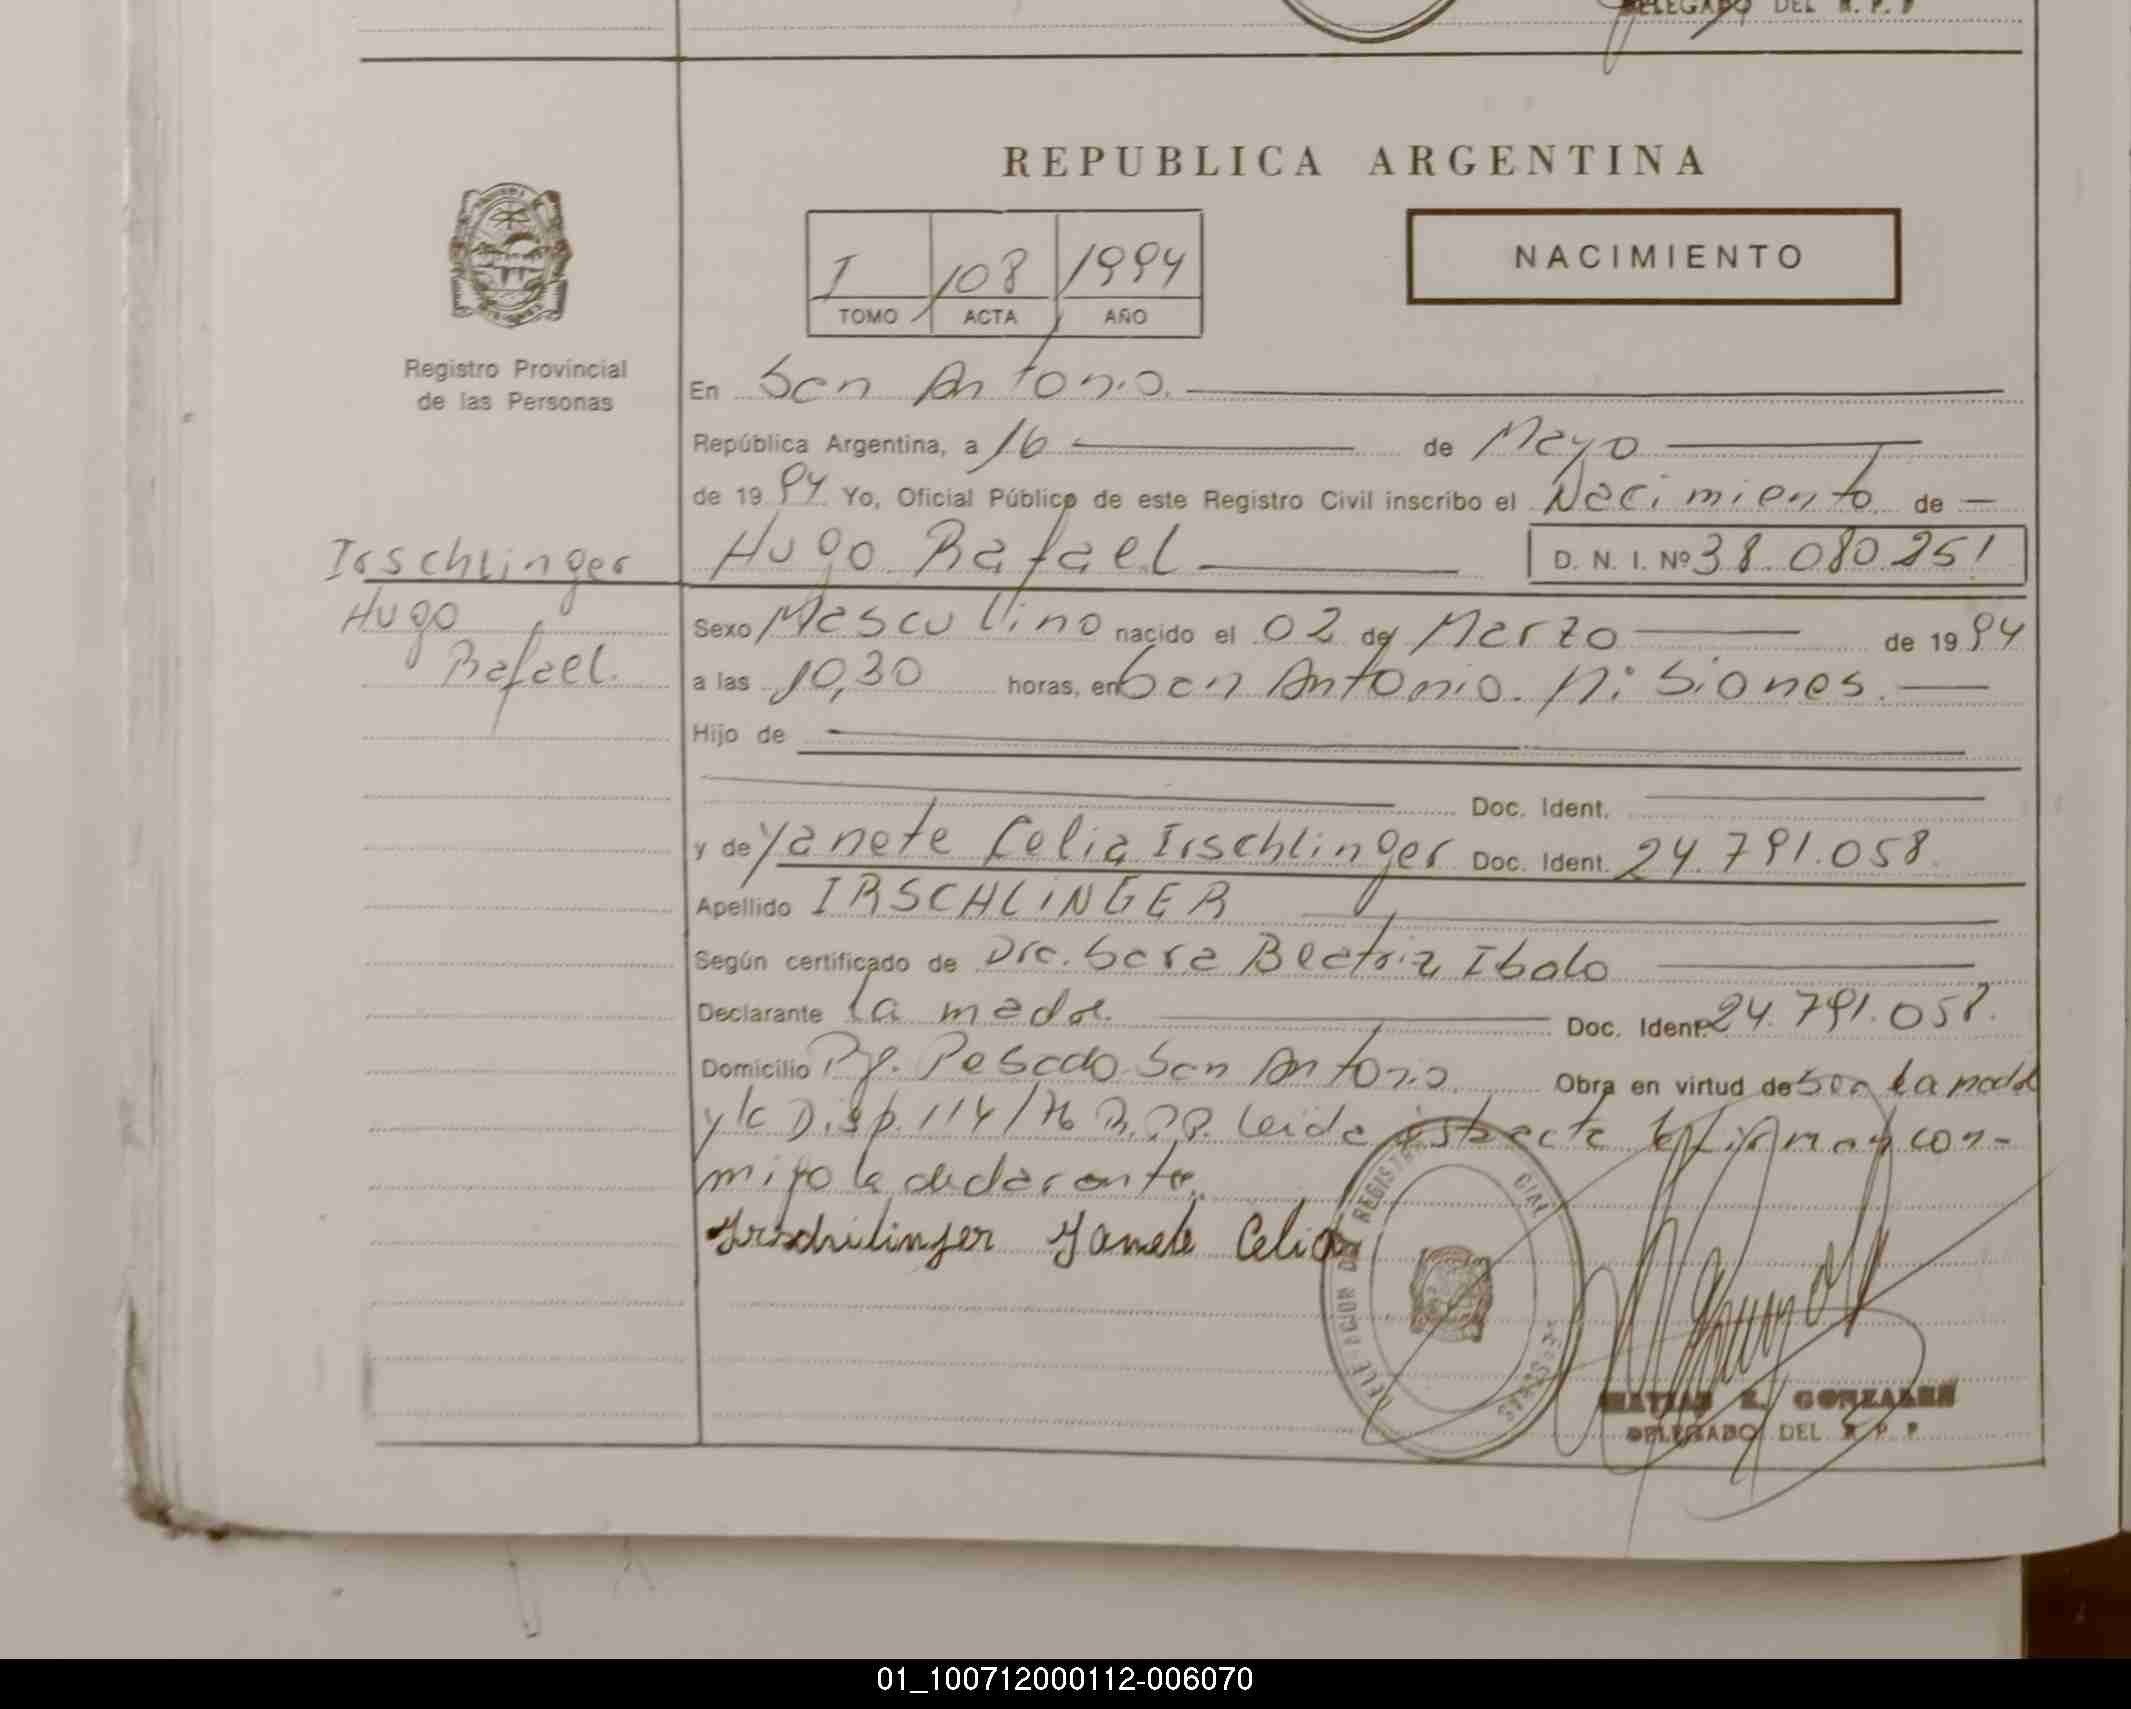 DELEGADO DEL R. P. P
REPUBLICA ARGENTINA
I 108 1994
TOMO ACTA AÑO
NACIMIENTO
Registro Provincial
de las Personas
En San Antonio.
República Argentina, a 16 de Mayo
de 1994 Yo, Oficial Público de este Registro Civil inscribo el Nacimiento de
Irschlinger
Hugo
Rafael.
Hugo Rafael
D. N. I. Nº 38.080.251
Sexo Masculino nacido el 02 de Marzo de 1994
a las 10,30 horas, en San Antonio. Misiones.
Hijo de
Doc. Ident.
y de Yanete Celia Irschlinger Doc. Ident. 24.791.058
Apellido IRSCHLINGER
Según certificado de Dra. Sara Beatriz Ibalo
Declarante La madre. Doc. Ident. 24.791.058.
Domicilio Pje. Pesado San Antonio. Obra en virtud de Ser la madre
y la Disp. 114/76 R.P.P. Leida esta acta la firman con-
migo la declarante.
Irschilinger Yanete Celia
DELEGACION DEL REGISTRO
MATIAS R. GONZALEZ
DELEGADO DEL R. P. P.
01_100712000112-006070